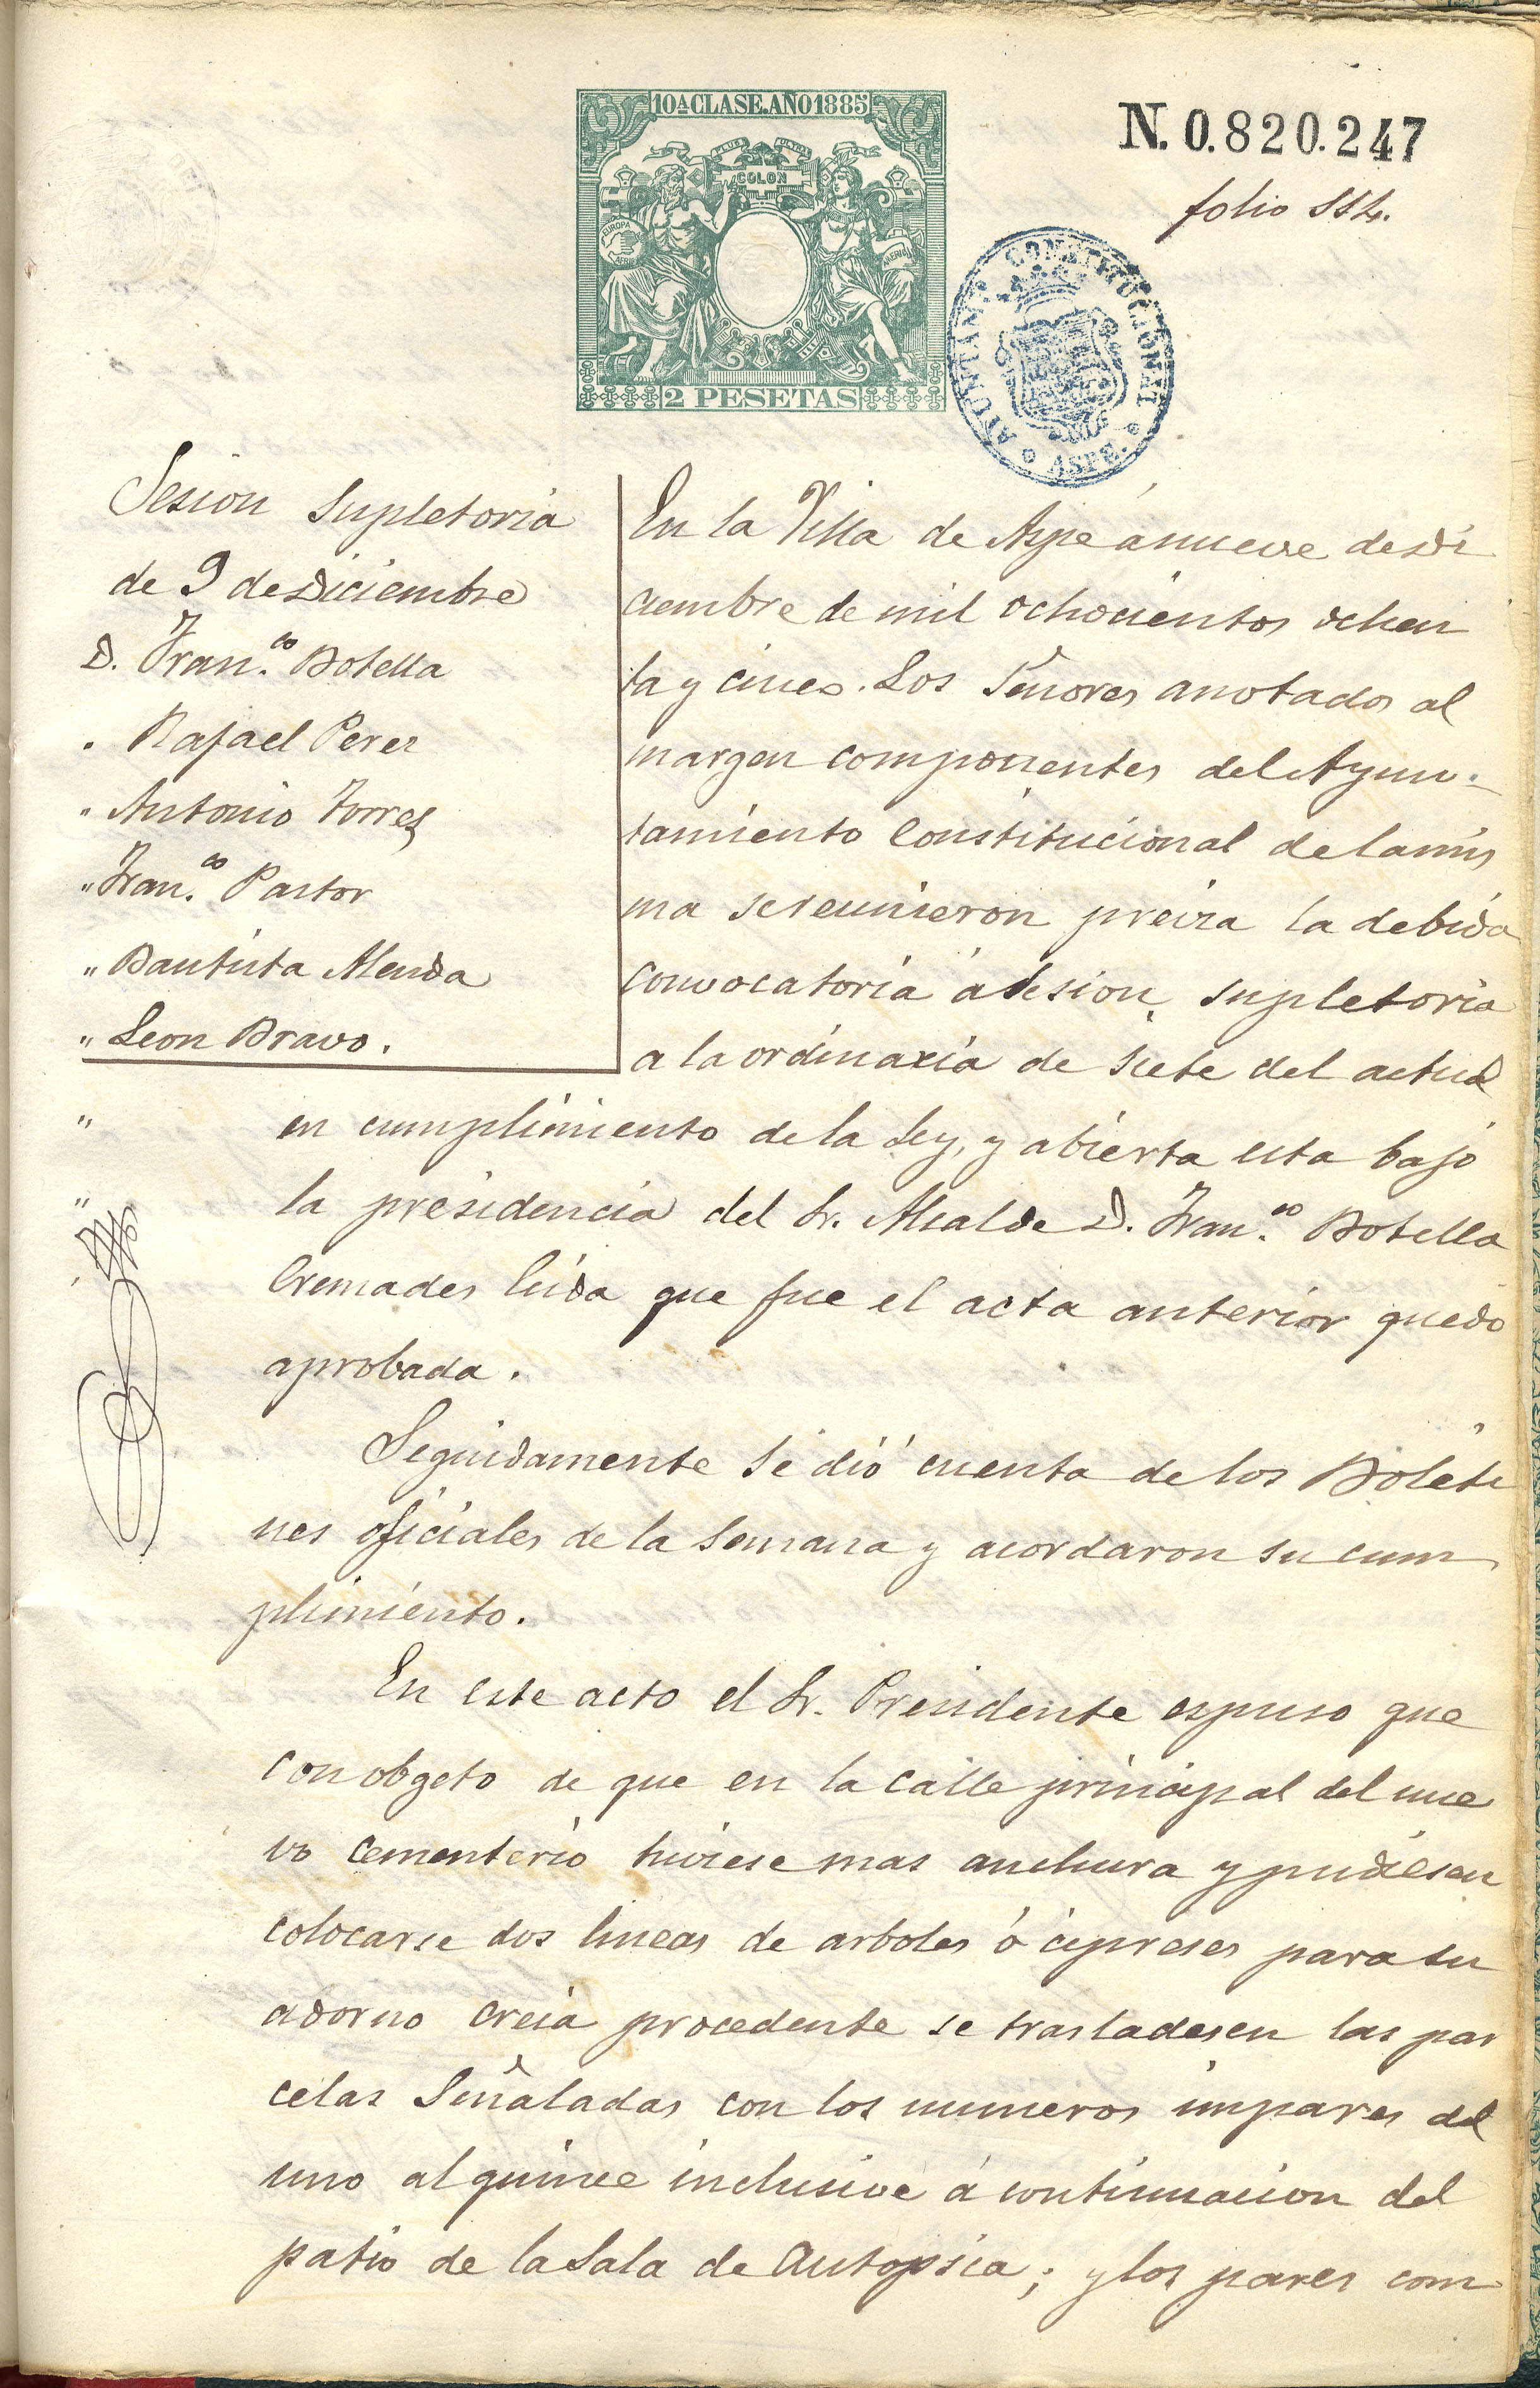 10ª CLASE. AÑO 1885
PLUS ULTRA
COLON
EUROPA
AFRICA
AMERICA
2 PESETAS
N. 0.820.247
folio 114.
AYUNTAMTO CONSTITUCIONAL
ASPE.
Sesion Supletoria
de 9 de Diciembre
D. Fran.co Botella
. Rafael Perez
" Antonio Torres
" Fran.co Pastor
" Bautista Alenda
" Leon Bravo.
"
"
En la Villa de Aspe á nueve de Di
ciembre de mil ochocientos ochen
ta y cinco. Los Señores anotados al
margen componentes del Ayun-
tamiento Constitucional de la mis
ma se reunieron previa la debida
convocatoria á sesion supletoria
a la ordinaria de siete del actual
en cumplimiento de la Ley, y abierta esta bajo
la presidencia del Sr. Alcalde D. Fran.co Botella
Cremades leida que fue el acta anterior quedo
aprobada.
Seguidamente se dió cuenta de los Boleti
nes oficiales de la Semana y acordaron su cum
plimiento.
En este acto el Sr. Presidente espuso que
con obgeto de que en la calle principal del nue
vo cementerio hubiese mas anchura y pudiesen
colocarse dos lineas de arboles ó cipreses para su
adorno creia procedente se trasladesen las par
celas Señaladas con los numeros impares del
uno al quince inclusive á continuacion del
patio de la Sala de Autopsia; y los pares com